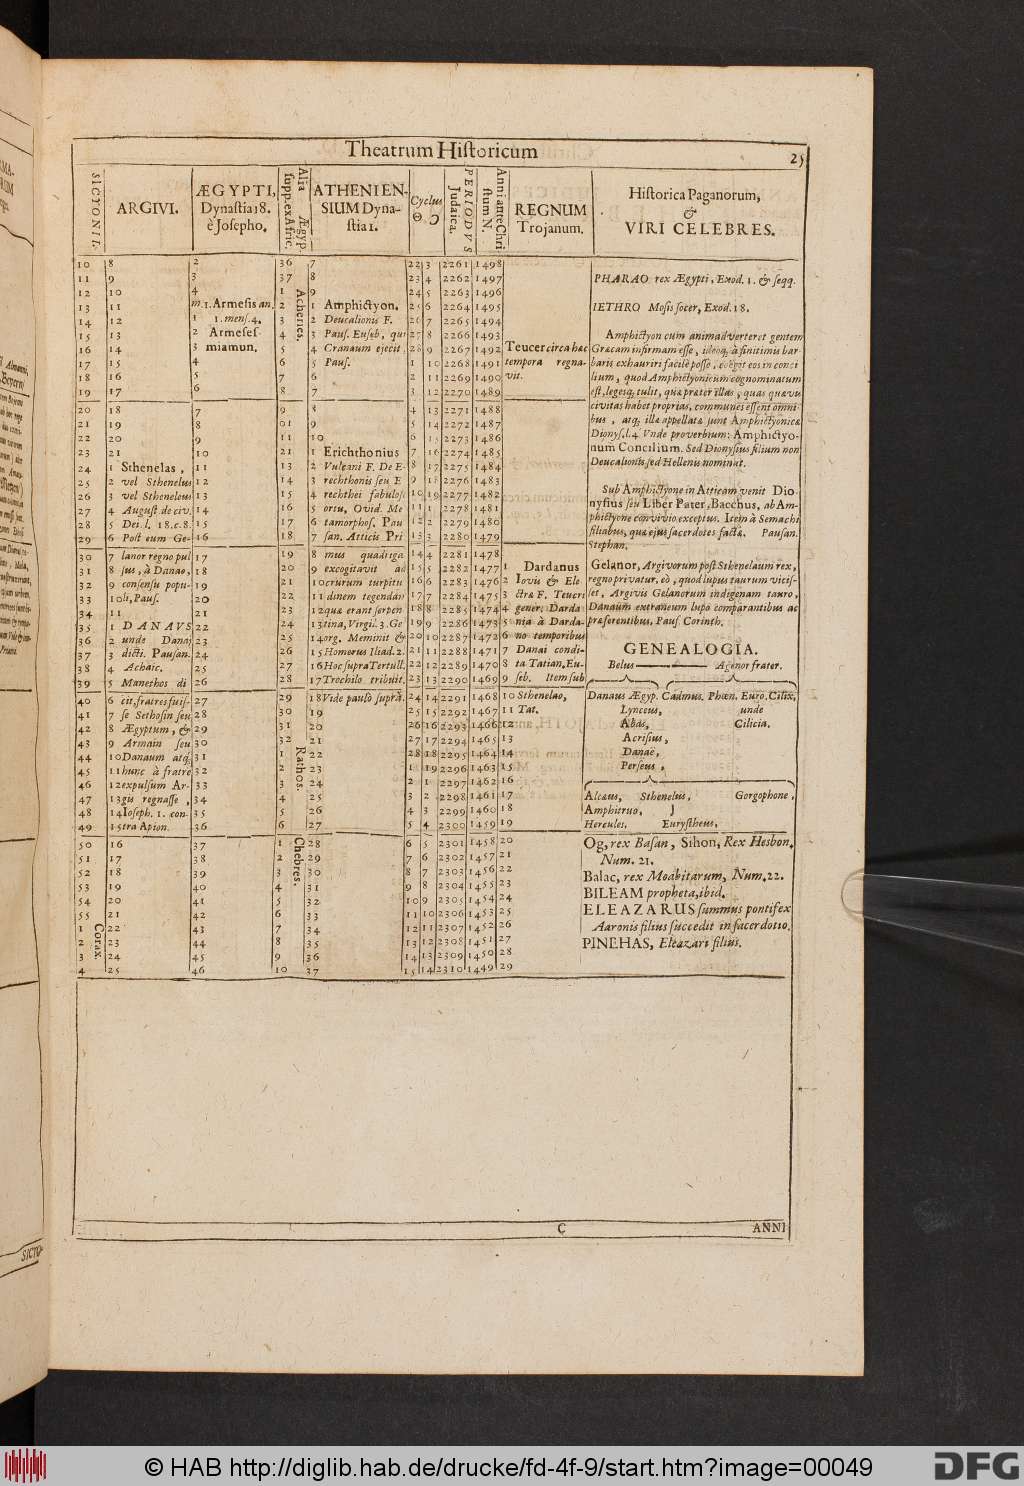 Theatrum Historicum
25
SICYONII.
ARGIVI.
ÆGYPTI,
Dynastia 18.
è Josepho.
Alia Ægyp.
supp. ex Afric.
ATHENIEN-
SIUM Dyna-
stia 1.
Cyclus
PERIODUS
Judaica.
Anni ante Chri
stum N.
REGNUM
Trojanum.
Historica Paganorum,
&
VIRI CELEBRES.
10 8 2 36 7 22 3 2261 1498
11 9 3 37 8 23 4 2262 1497 PHARAO rex Ægypti, Exod. 1. & seqq.
12 10 4 1 9 24 5 2263 1496
13 11 m. 1. Armesis an. 2 1 Amphictyon. 25 6 2264 1495 IETHRO Mosis socer, Exod. 18.
14 12 1 1. mens. 4. 3 2 Deucalionis F. 26 7 2265 1494
15 13 2 Armeses- 4 3 Paus. Euseb, qui 27 8 2266 1493 Amphictyon cum animadverteret gentem
16 14 3 miamun. 5 4 Cranaum ejecit. 28 9 2267 1492 Teucer circa hæc Græcam infirmam esse, ideoq; à finitimis bar-
17 15 4 6 5 Paus. 1 10 2268 1491 tempora regna- baris exhauriri facile posse, coegit eos in conci
18 16 5 7 6 2 11 2269 1490 vit. lium, quod Amphictyonicum cognominatum
19 17 6 8 7 3 12 2270 1489 est, legesq; tulit, quæ præter illas, quas quævis
20 18 7 9 8 4 13 2271 1488 civitas habet proprias, communes essent omni-
21 19 8 01 9 5 14 2272 1487 bus, atq; illæ appellatæ sunt Amphictyonicæ
22 20 9 11 10 6 15 2273 1486 Dionys. l. 4 Unde proverbium: Amphictyo-
23 21 10 21 1 Erichthonius 7 16 2274 1485 num Concilium. Sed Dionysius filium non
24 1 Sthenelas, 11 13 2 Vulcani F. De E- 8 17 2275 1484 Deucalionis sed Hellenis nominat.
25 2 vel Sthenelus 12 14 3 rechthonis seu E 9 18 2276 1483
26 3 vel Stheneleus 13 15 4 rechthei fabuloso 10 19 2277 1482 Sub Amphictyone in Atticam venit Dio-
27 4 August de civ. 14 16 5 ortu, Ovid. Me 11 1 2278 1481 nysius seu Liber Pater, Bacchus, ab Am-
28 5 Dei. l. 18. c. 8. 15 17 6 tamorphos. Pau 12 2 2279 1480 phictyone convivio exceptus. Item à Semachi
29 6 Post eum Ge- 16 18 7 san. Atticis Pri 13 3 2280 1479 filiabus, quæ ejus sacerdotes factæ. Pausan.
Stephan.
30 7 lanor regno pul 17 19 8 mus quadriga 14 4 2281 1478
31 8 sus, à Danao, 18 20 9 excogitavit ad 15 5 2282 1477 1 Dardanus Gelanor, Argivorum post Sthenelaum rex,
32 9 consensu popu- 19 21 10 crurum turpitu 16 6 2283 1476 2 Iovis & Ele regno privatur. eò, quod lupus taurum vicis-
33 10 li, Paus. 20 22 11 dinem tegendam 17 7 2284 1475 3 ctræ F. Teucri set, Argivis Gelanorum indigenam tauro,
34 11 21 23 12 quæ erant serpen 18 8 2285 1474 4 gener: Darda Danaum extraneum lupo comparantibus ac
35 1 DANAVS 22 24 13 tina, Virgil. 3. Ge 19 9 2286 1473 5 nia à Darda- præferentibus. Paus. Corinth.
36 2 unde Danaj 23 25 14 org. Meminit & 20 10 2287 1472 6 no temporibus
37 3 dicti. Pausan. 24 26 15 Homerus Iliad. 2. 21 11 2288 1471 7 Danai condi- GENEALOGIA.
38 4 Achaic. 25 27 16 Hoc supra Tertull. 22 12 2289 1470 8 ta Tatian, Eu- Belus Agenor frater.
39 5 Manethos di 26 28 17 Trochilo tribuit. 23 13 2290 1469 9 seb. Item sub
40 6 cit, fratres fuis- 27 29 18 Vide paulò suprà. 24 14 2291 1468 10 Sthenelao, Danaus Ægyp. Cadmus, Phœn. Euro. Cilix,
41 7 se Sethosin seu 28 30 19 25 15 2292 1467 11 Tat. Lynceus, unde
42 8 Ægyptum, & 29 31 20 26 16 2293 1466 12 Abas, Cilicia.
43 9 Armain seu 30 32 21 27 17 2294 1465 13 Acrisius,
44 10 Danaum atq; 31 1 22 28 18 2295 1464 14 Danaë,
45 11 hunc à fratre 32 2 23 1 19 2296 1463 15 Perseus,
46 12 expulsum Ar- 33 3 24 2 1 2297 1462 16
47 13 gis regnasse, 34 4 25 3 2 2298 1461 17 Alcæus, Sthenelus, Gorgophone,
48 14 Ioseph. 1. con- 35 5 26 4 3 2299 1460 18 Amphitruo,
49 15 tra Apion. 36 6 27 5 4 2300 1459 19 Hercules. Eurystheus,
50 16 37 1 28 6 5 2301 1458 20 Og, rex Basan, Sihon, Rex Hesbon.
51 17 38 2 29 7 6 2302 1457 21 Num. 21.
52 18 39 3 30 8 7 2303 1456 22 Balac, rex Moabitarum, Num. 22.
53 19 40 4 31 9 8 2304 1455 23 BILEAM propheta, ibid.
54 20 41 5 32 10 9 2305 1454 24 ELEAZARUS summus pontifex
55 21 42 6 33 11 10 2306 1453 25 Aaronis filius succedit in sacerdotio.
1 22 43 7 34 12 11 2307 1452 26 PINEHAS, Eleazari filius.
2 23 44 8 35 13 12 2308 1451 27
3 24 45 9 36 14 13 2309 1450 28
4 25 46 10 37 15 14 2310 1449 29
Acheres.
Rathos.
Chebres.
Corax.
C
ANNI
SICYO-
© HAB http://diglib.hab.de/drucke/fd-4f-9/start.htm?image=00049
DFG